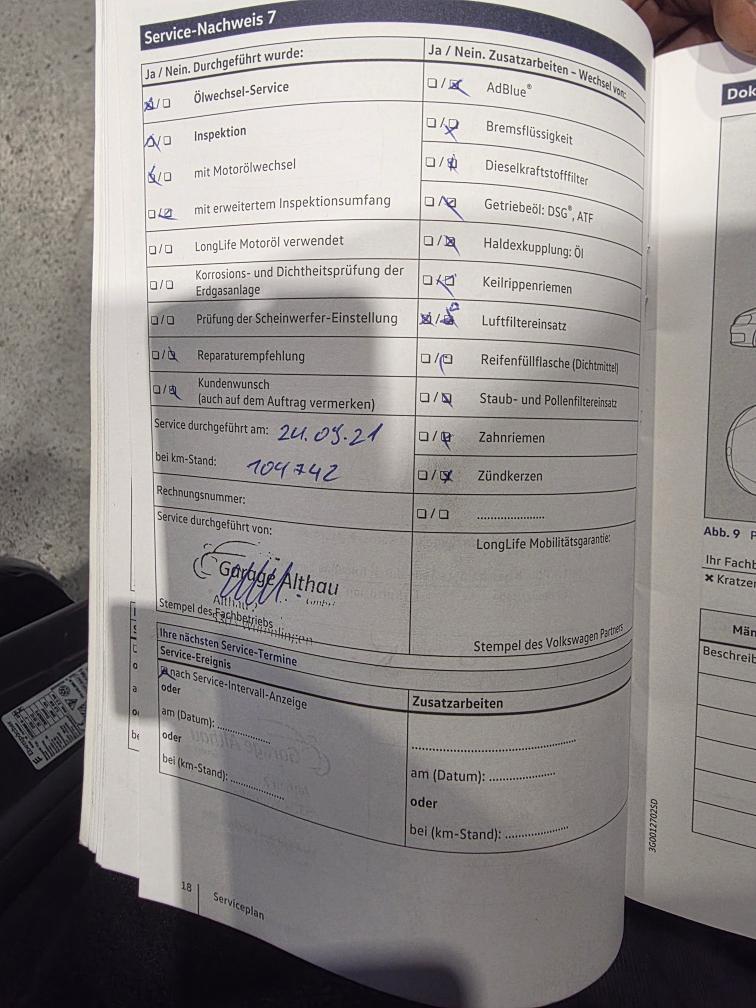 Service-Nachweis 7
Ja / Nein. Durchgeführt wurde:
Ölwechsel-Service
Inspektion
mit Motorölwechsel
mit erweitertem Inspektionsumfang
LongLife Motoröl verwendet
Korrosions- und Dichtheitsprüfung der
Erdgasanlage
Prüfung der Scheinwerfer-Einstellung
Reparaturempfehlung
Kundenwunsch
(auch auf dem Auftrag vermerken)
Service durchgeführt am: 24.09.21
bei km-Stand: 104742
Rechnungsnummer:
Service durchgeführt von:
Garage Althau
GmbH
Stempel des Fachbetriebs
Ja / Nein. Zusatzarbeiten – Wechsel von:
AdBlue®
Bremsflüssigkeit
Dieselkraftstofffilter
Getriebeöl: DSG®, ATF
Haldexkupplung: Öl
Keilrippenriemen
Luftfiltereinsatz
Reifenfüllflasche (Dichtmittel)
Staub- und Pollenfiltereinsatz
Zahnriemen
Zündkerzen
....................
LongLife Mobilitätsgarantie:
Stempel des Volkswagen Partners
Ihre nächsten Service-Termine
Service-Ereignis
nach Service-Intervall-Anzeige
oder
am (Datum): ................
oder
bei (km-Stand): ................
Zusatzarbeiten
..................................................
am (Datum): ....................
oder
bei (km-Stand): ...................
18 Serviceplan
3G0012702SD
Dok
Abb. 9 P
Ihr Fachb
✖ Kratzer
Män
Beschreib